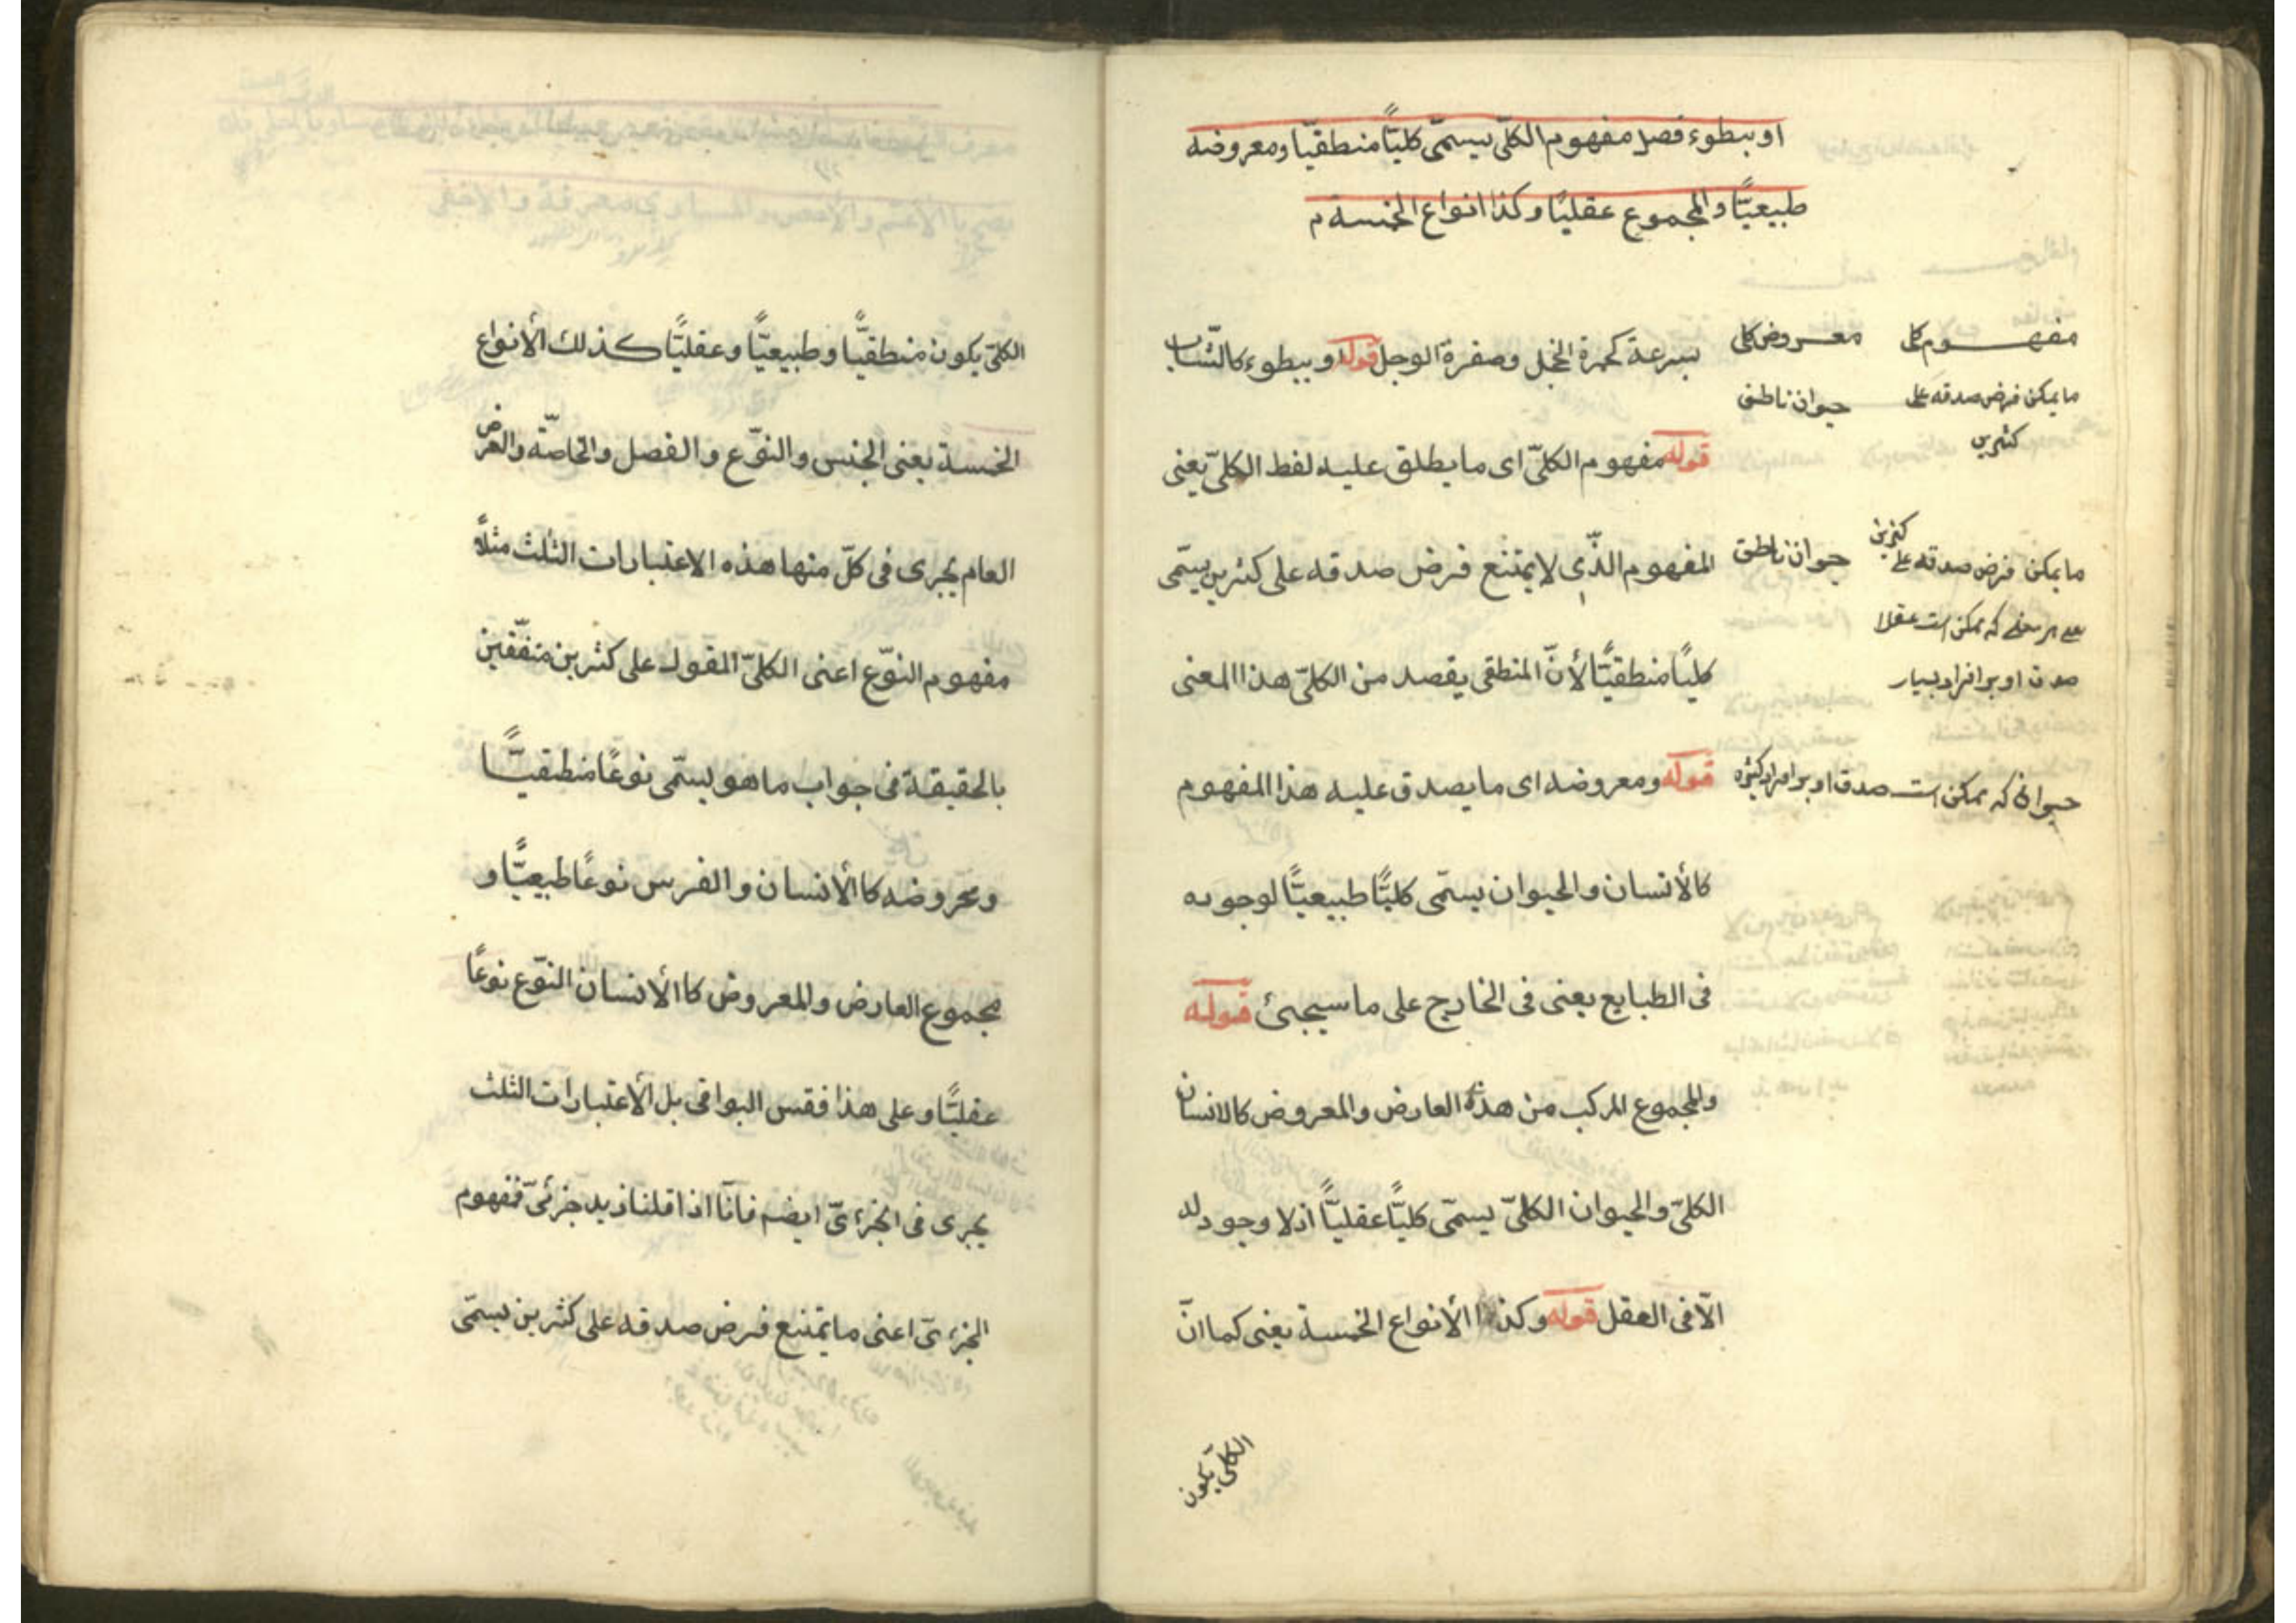 او ببطوء فصل مفهوم الكلّي يسمّى كليّاً منطقيّا ومعروضه
طبيعيّاً والمجموع عقليّا وكذا انواع الخمسة م
بسرعة كحمرة الخجل وصفرة الوجل قوله وببطوء كالشّباب
قوله مفهوم الكلّيّ اى ما يطلق عليه لفظ الكلّيّ يعنى
المفهوم الّذى لا يمتنع فرض صدقه على كثيرين يسمّى
كليّاً منطقيّاً لأنّ المنطقى يقصد من الكلّيّ هذا المعنى
قوله ومعروضه اى ما يصدق عليه هذا المفهوم
كالأنسان والحيوان يسمّى كليّاً طبيعيّاً لوجوده
فى الطبايع يعنى فى الخارج على ما سيجئ قوله
والمجموع المركب من هذه العارض والمعروض كالانسان
الكلّيّ والحيوان الكلّيّ يسمّى كليّاً عقليّاً اذلا وجود له
الّا فى العقل قوله وكذا الأنواع الخمسة يعنى كما انّ
الكلّى يكون
مفهوم كلى معروض كلى
ما يمكن فرض صدقه على حيوان ناطق
كثيرين
ما يمكن فرض صدقه على كثيرين حيوان ناطق
كه ممكن است عقلا
صدق او بر افراد بسيار
حيوانى كه ممكن است صدق او بر افراد كثيره
الكلّيّ يكون منطقيّاً وطبيعيّاً وعقليّاً كذلك الأنواع
الخمسة يعنى الجنس والنوّع والفصل والخاصّة والعرض
العام يجرى فى كلّ منها هذه الاعتبارات الثلث مثلاً
مفهوم النوّع اعنى الكلّيّ المقول على كثيرين متفّقين
بالحقيقة فى جواب ما هو يسمّى نوعًا منطقيّاً
ومعروضه كاالأنسان والفرس نوعًا طبيعيّاً و
مجموع العارض والمعروض كاالأنسان النوّع نوعًا
عقليّاً وعلى هذا فقس البواقى بل الأعتبارات الثلث
يجرى فى الجزئىّ ايضم فانّا اذا قلنا زيد جزئىّ فمفهوم
الجزئىّ اعنى ما يمتنع فرض صدقه على كثيرين يسمّى